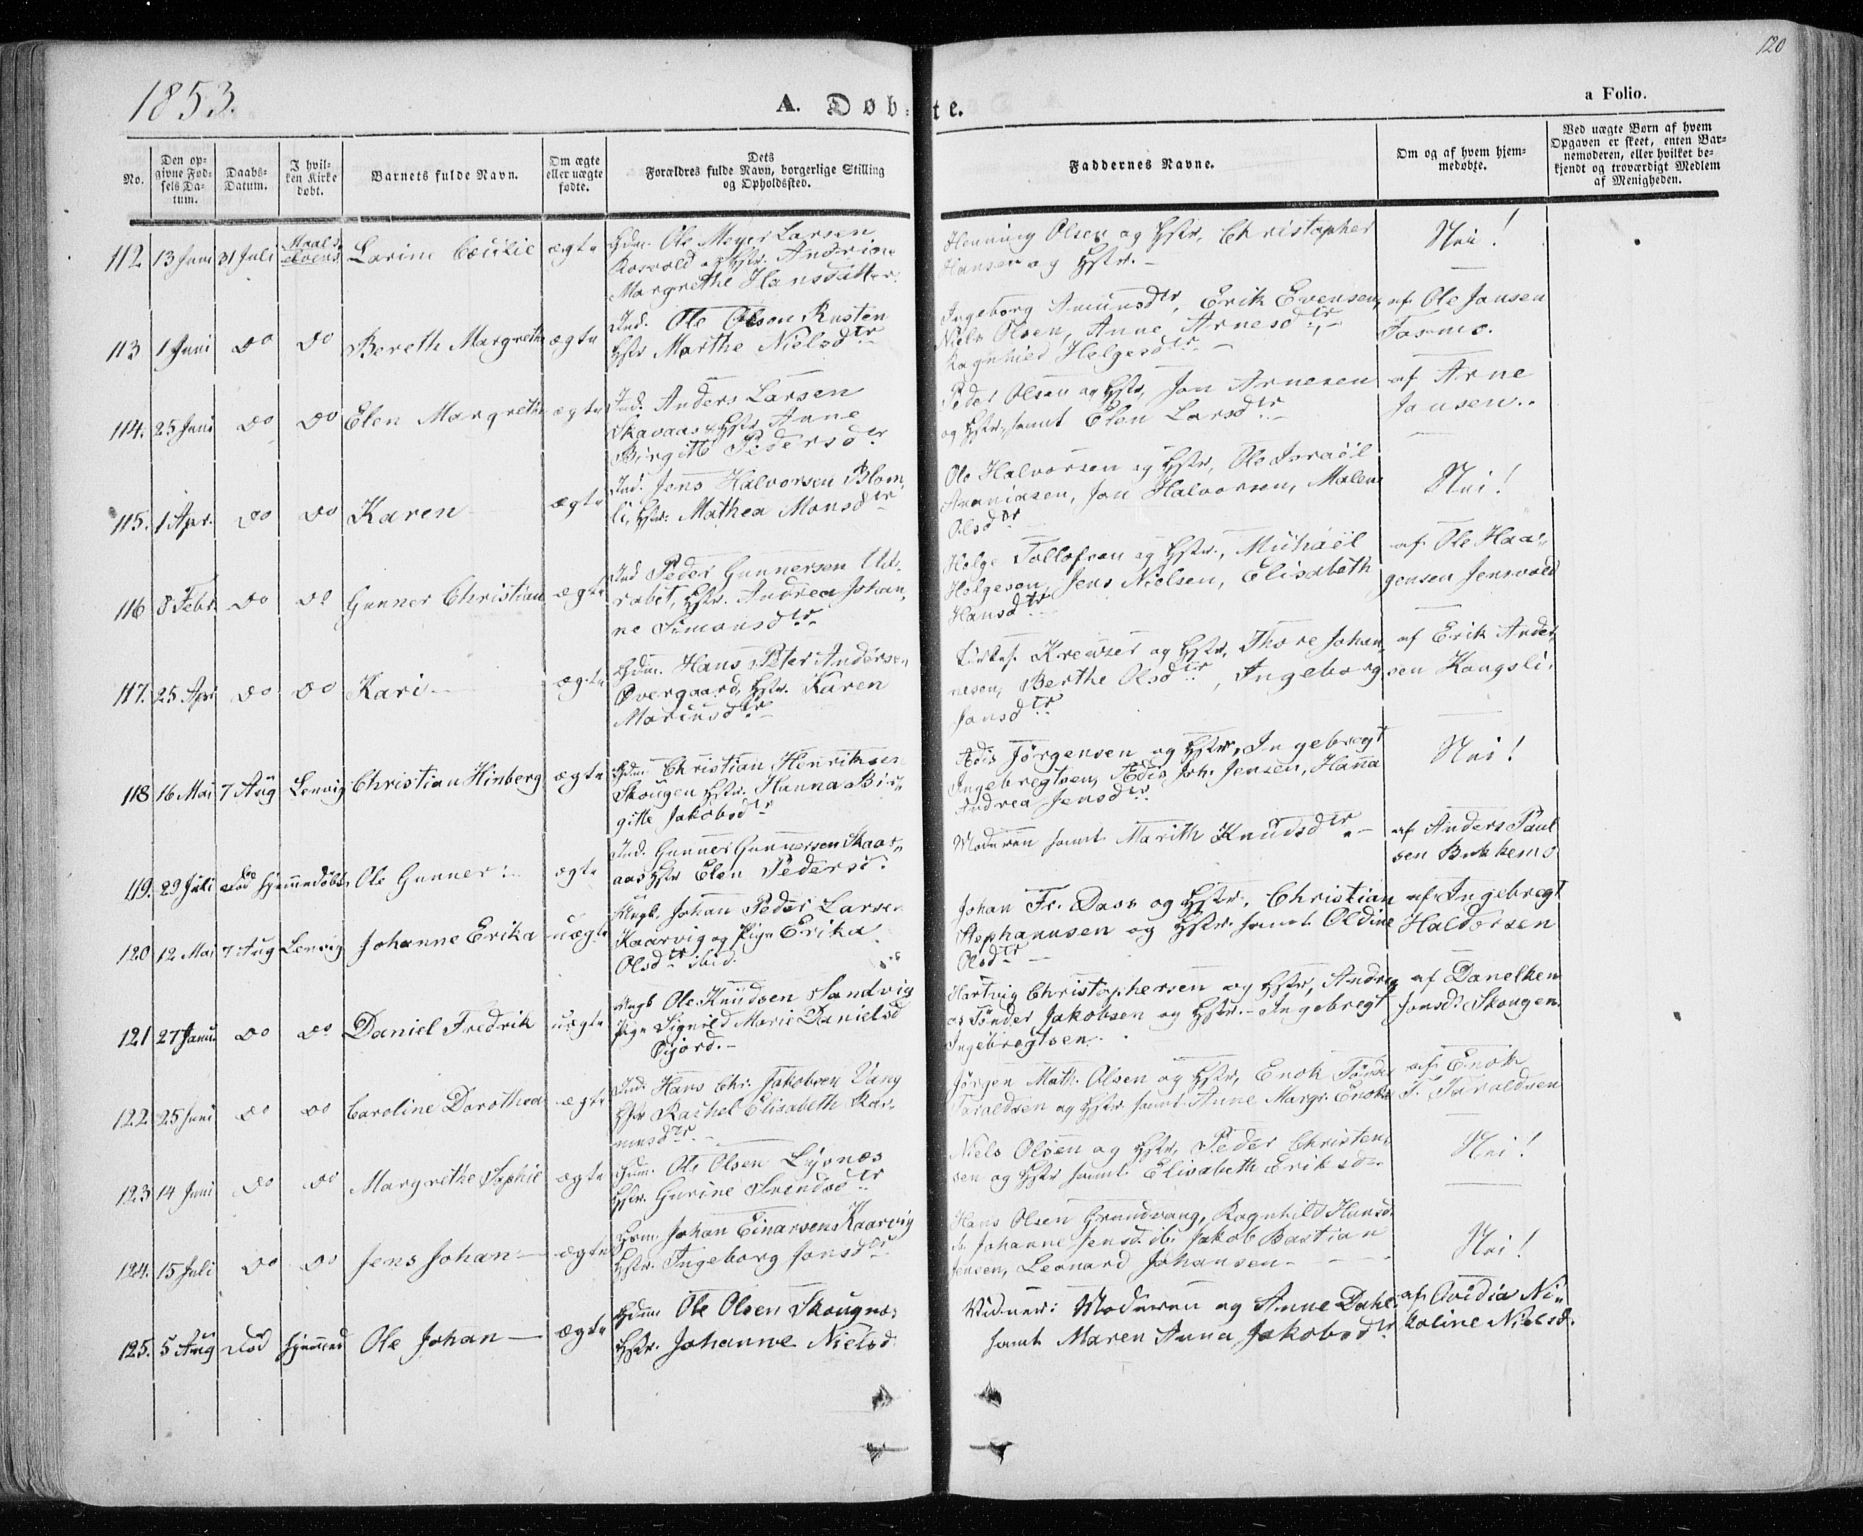 120
1853.
A. Døbte.
a Folio.
No.
Den op-
givne Fød-
sels Da-
tum.
Daabs-
Datum.
I hvil-
ken Kirke
døbt.
Barnets fulde Navn.
Om ægte
eller uægte
fødte.
Dets
Forældres fulde Navn, borgerlige Stilling
og Opholdssted.
Faddernes Navne.
Om og af hvem hjem-
medøbte.
Ved uægte Børn af hvem
Opgaven er skeet, enten Bar-
nemoderen, eller hvilket be-
kjendt og troværdigt Medlem
af Menigheden.
112 13 Juni 31 Juli Maals-
elvens Larine Cecilie ægte
Hdm. Ole Meyer Larsen
Rosvold og Hstr. Andrine
Margrethe Hansdatter
Henning Olsen og Hstr, Christopher
Hansen og Hstr. -
Nei!
113 1 Juni Do Do Bereth Margrethe ægte
Ind. Ole Olson Rusten
Hstr Marthe Nielsdtr
Ingeborg Amundsdtr, Erik Evensen,
Niels Olsen, Anne Arnesdtr,
Ragnhild Helgesdtr -
af Ole Jonsen
Fosmo.
114. 25 Juni Do Do Elen Margrethe ægte
Ind. Anders Larsen
Skavaas Hstr Anne
Birgitte Pedersdtr
Peder Olsen og Hstr, Jon Arnesen
og Hstr, samt Elen Larsdtr -
af Arne
Jonsen..
115. 1 Apr. Do Do Karen ægte
Ind. Jens Halvorsen Blom-
li, Hstr. Mathea Monsdtr
Ole Halvorsen og Hstr, Ole Israël
Ananiasen, Jon Halvorsen, Malene
Olsdtr
Nei!
116 8 Febr. Do Do Gunner Christian ægte
Ind Peder Gunnersen Ud-
rabet, Hstr. Andrea Johan-
ne Simonsdtr
Helge Tollefsen og Hstr., Michaël
Helgesen, Jens Nielsen, Elisabeth
Hansdtr
af Ole Haa-
gensen Jensvold
117. 25 Apr Do Do Kari ægte
Hdm. Hans Peter Andersen
Øvergaard, Hstr. Karen
Mariusdtr
Kreutzer og Hstr, Thore Johan-
nesen, Berthe Olsdtr, Ingeborg
Jonsdtr
af Erik Ander-
sen Kongsli.
118 16 Mai 7 Aug Lenvig Christian Hinberg ægte
Hdm. Christian Henriksen
Skougen Hstr. Hanna Bir-
gitte Jakobsdtr
Adis Jörgensen og Hstr, Ingebregt
Ingebregtsen, Adis Joh. Jensen, Hanna
Andrea Jensdtr
Nei!
119. 29 Juli Død Hjemmedøbt Ole Gunner ægte
Ind. Gunner Gunnersen Skaar-
aas Hstr Elen Pedersd.
Moderen samt Marith Knudsdtr -
af Anders Paul
sen Bakkemo
120 12 Mai 7 Aug Lenvig Johanne Erika uægte
Ungk. Johan Peder Larsen
Kaarvig og Pige Erika
Olsdtr ibid.
Johan Fr. Dass og Hstr, Christian
Stephanusen og Hstr. samt Oldine
Olsdtr -
af Ingebregt
Haldorsen
121 27 Janu. Do Do Daniel Fredrik uægte
Ungk Ole Knudsen Sandvig
Pige Sigrild Marie Danielsd
Gjord. -
Hartvig Christophersen og Hstr, Andre-
as Tönder Jakobsen og Hstr. Ingebregt
Ingebregtsen.
af Danelken
Jonsd. Skougen
122. 25 Juni Do Do Caroline Dorothea ægte
Ind. Hans Chr. Jakobsen Vang
Hstr Rachel Elisabeth Ras-
musdtr. -
Jörgen Math. Olsen og Hstr, Enok Tönder
Taraldsen og Hstr samt Anne Margr. Enoks
af Enok
T. Taraldsen
123 14 Juni Do Do Margrethe Sophie ægte
Hum. Ole Olsen Lysnæs
Hstr. Gurine Svendsdtr
Niels Olsen og Hstr, Peder Christen-
sen og Hstr samt Elisabeth Eriksd.
Nei!
124. 15 Juli Do Do Jens Johan ægte
Hdm. Johan Einarsen Kaarvig
Hstr. Ingeborg Jonsdtr
Hans Olsen Grundvang, Ragnhild Hansd.
Johanne Jensd. ibi Jakob Bastian
Jensen, Leonard Johansen -
Nei!
125. 5 Aug Død Hjemmed Ole Johan ægte
Hdm Ole Olsen Skougnæs
Hstr. Johanne Nielsd
Vidner: Moderen og Anne Dahl
samt Maren Anna Jakobsdtr
af Ovidia Ni-
koline Nielsd.